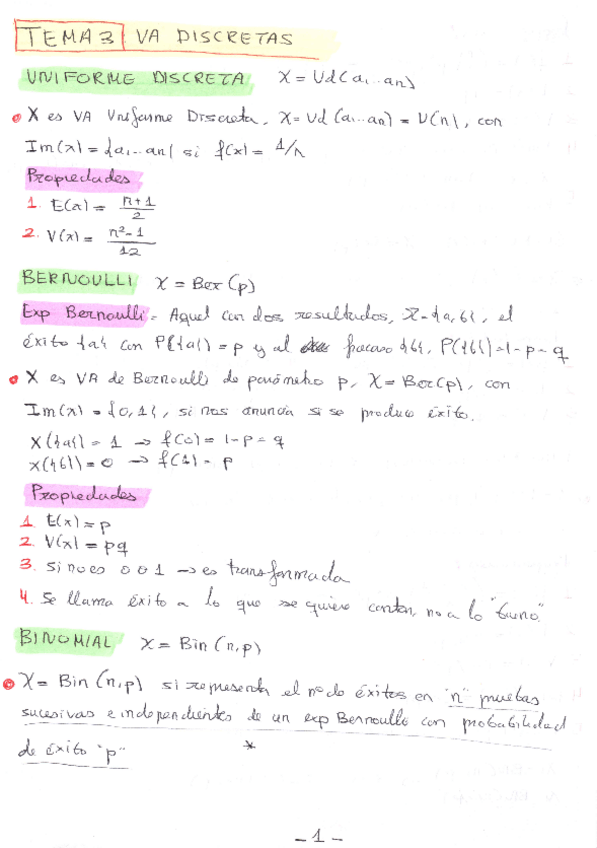 TEMA 3 VA DISCRETAS
UNIFORME DISCRETA X = Ud(a1...an)
X es VA Uniforme Discreta, X = Ud (a1...an) = U(n), con
Im(x) = {a1...an} si f(x) = 1/n
Propiedades
1. E(x) = n+1/2
2. V(x) = n²-1/12
BERNOULLI X = Ber(p)
Exp Bernoulli = Aquel con dos resultados, X={a,b}, el
éxito {a} con P({a}) = p y al fracaso {b}, P({b})=1-p=q
X es VA de Bernoulli de parámetro p, X = Ber(p), con
Im(x) = {0,1}, si nos anuncia si se produce éxito.
X({a}) = 1 → f(0) = 1-p = q
X({b}) = 0 → f(1) = p
Propiedades
1. E(x) = p
2. V(x) = pq
3. Si no es 0 o 1 → es transformada
4. Se llama éxito a lo que se quiere contar, no a lo "bueno".
BINOMIAL X = Bin (n,p)
X = Bin (n,p) si representa el nº de éxitos en "n" pruebas
sucesivas e independientes de un exp Bernoulli con probabilidad
de éxito "p" *
- 1 -